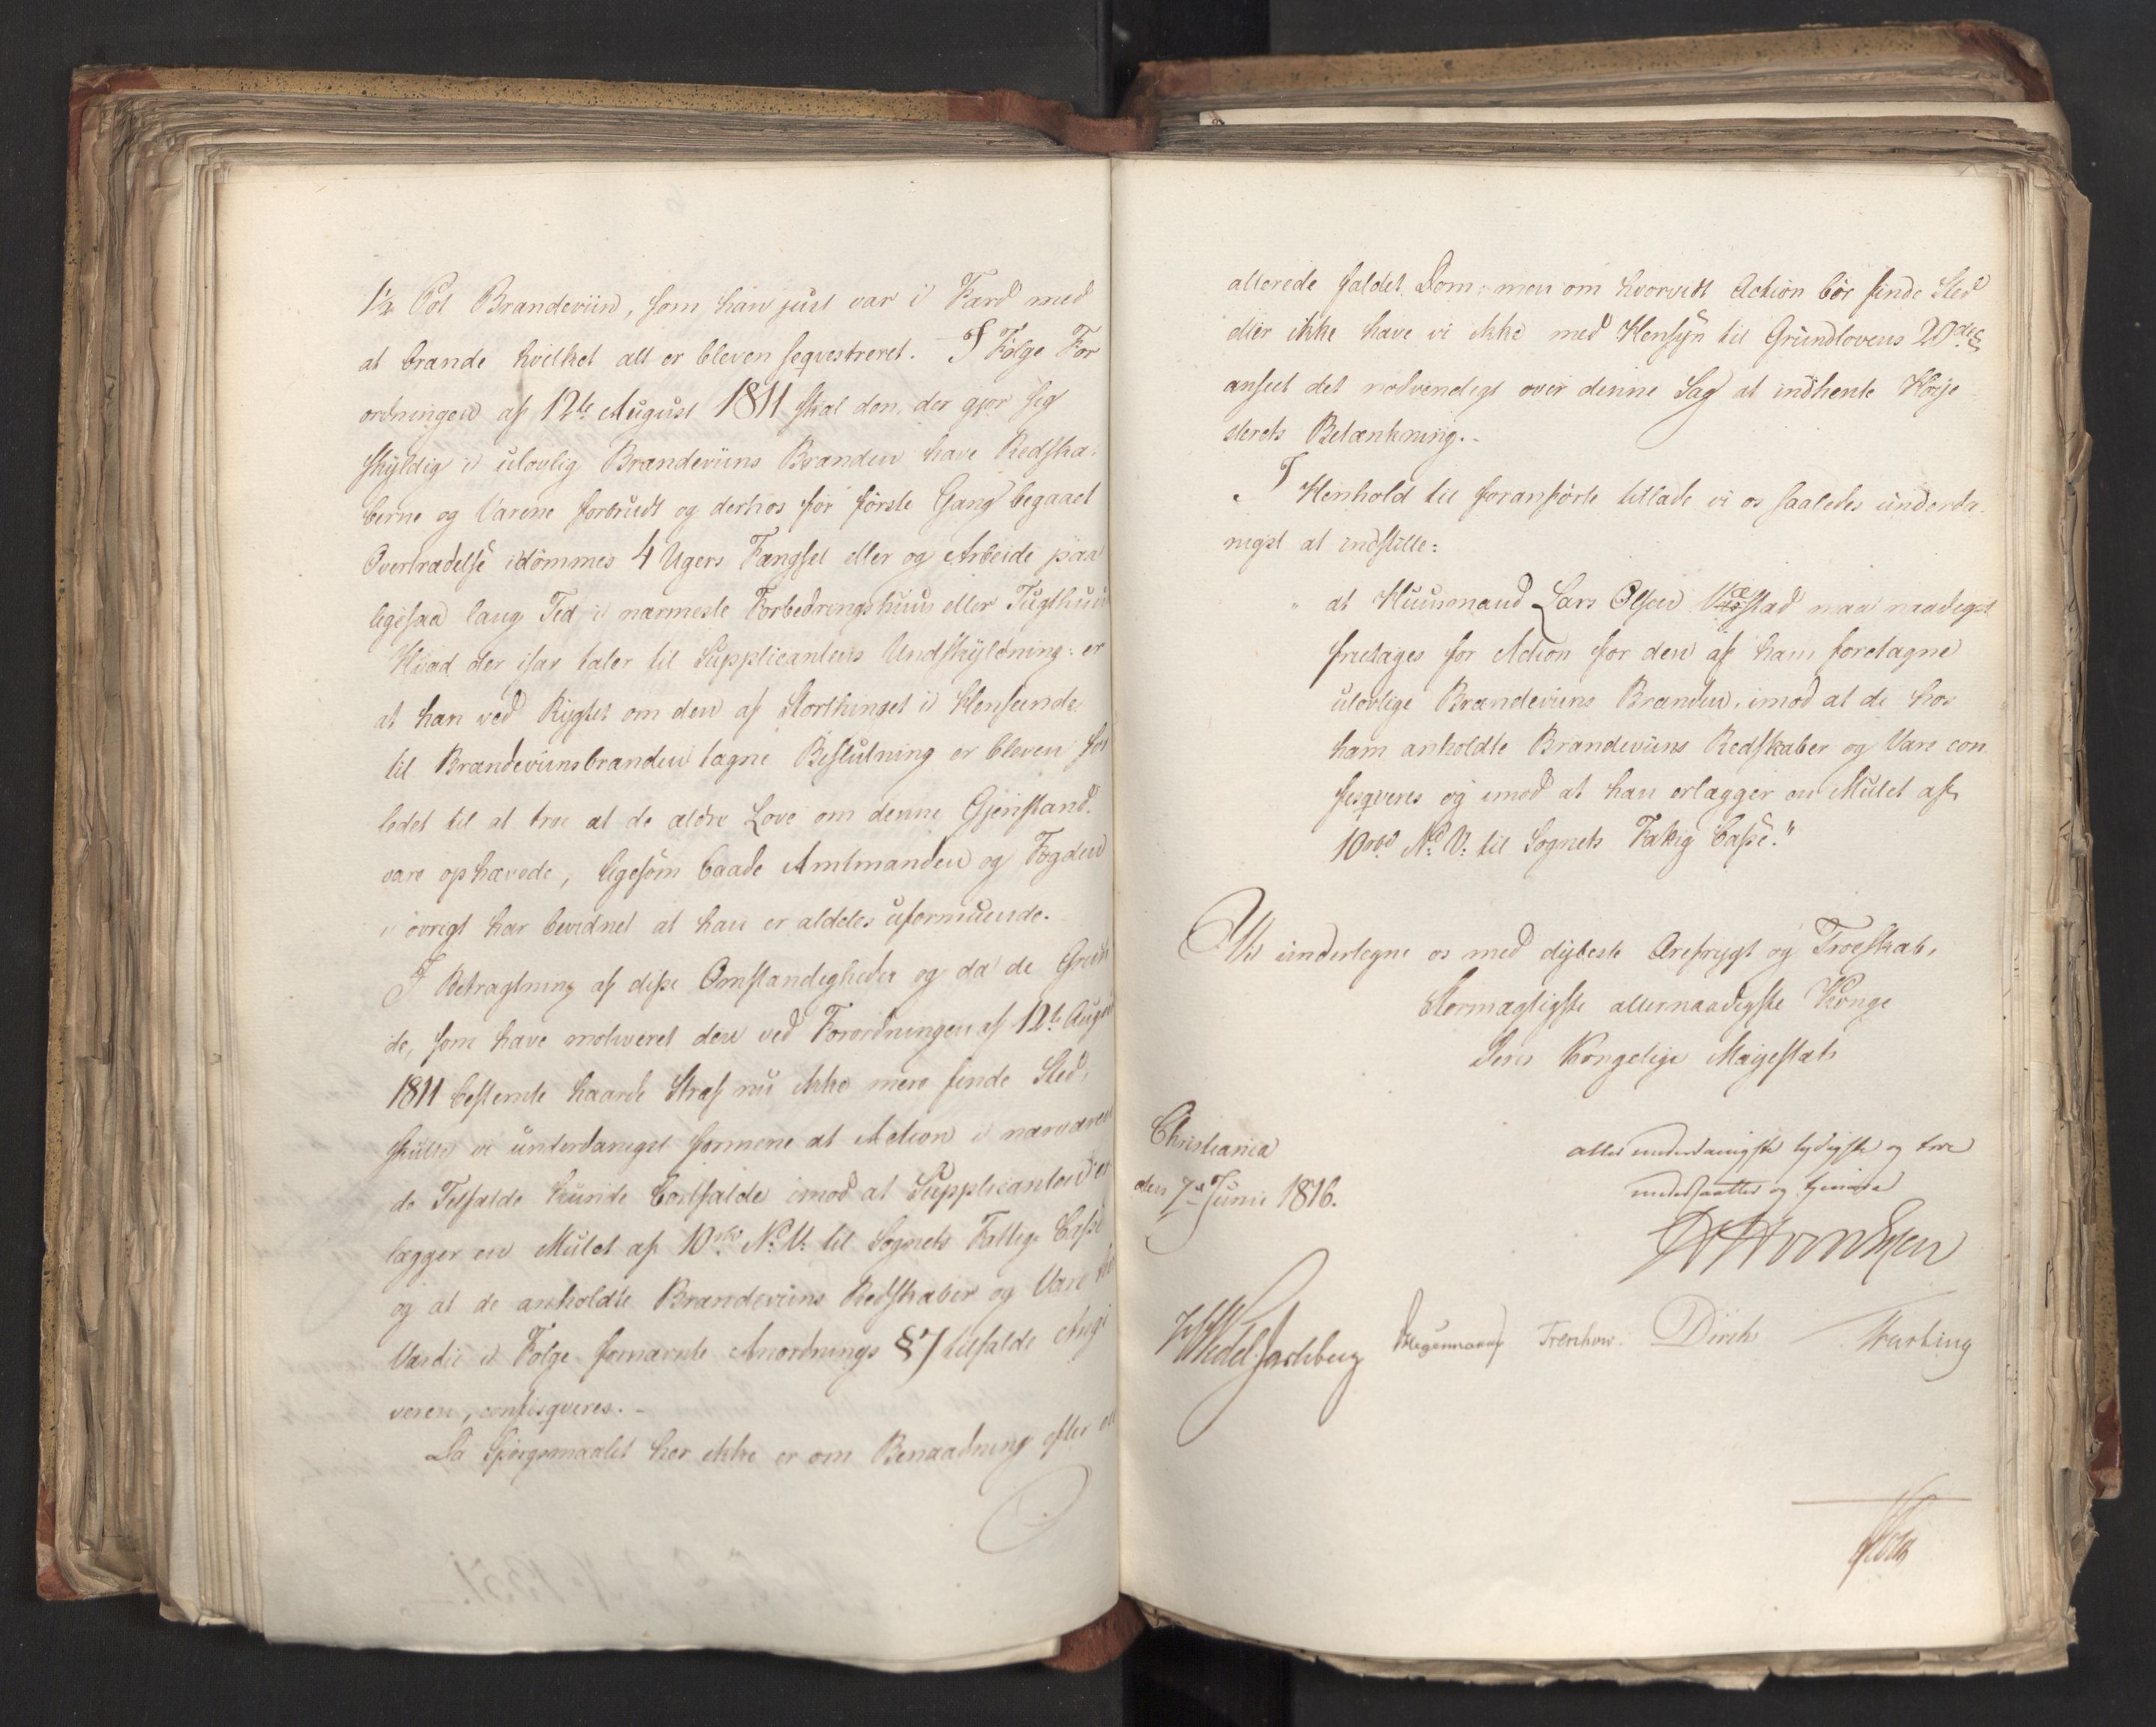 1½ Pot Brændeviin, som han just var i Færd med
at brænde hvilket alt er bleven seqvestreret. I Følge For
ordningen af 12te August 1811 skal den, der gjør sig
skyldig i ulovlig Brændeviins Brænden have Redska-
berne og Varene forbrudt og derhos for første Gang begaaet
Overtrædelse idømmes 4 Ugers Fængsel eller og Arbeide paa
ligesaa lang Tid i nærmeste Forbedringshuus eller Tugthuus
Hvad der især taler til Supplicantens Undskyldning: er
at han ved Rygtet om den af Storthinget i Henseende
til Brændeviinsbrænden tagne Beslutning er bleven for
ledet til at troe at de ældre Love om denne Gjenstand
vare ophævede, ligesom baade Amtmanden og Fogden
i øvrigt har bevidnet at han er aldeles uformuende.
I Betragtning af disse Omstændigheder og da de Grun
de, som have motiveret den ved Forordningen af 12te August
1811 bestemte haarde Straf nu ikke mere finde Sted,
skulde vi underdanigst formene at Action i nærværen
de Tilfælde kunde bortfalde imod at Supplicanten er
lægger en Mulct af 10 rbd N.V. til Sognets Fattige Casse
og at de anholdte Brændeviins Redskaber og Vare
Værdie i Følge fornævnte Anordnings § 7 tilfalde Angi
veren, confisqveres.-
Da Spørgsmaalet her ikke er om Benaadning efter en
allerede faldet Dom, men om hvorvidt Action bør finde Sted
eller ikke have vi ikke med Hensyn til Grundlovens 20de §
anseet det nødvendigt over denne Sag at indhente Høje
sterets Betænkning.-
I Henhold til foranførte tillade vi os saaledes underda
nigst at indstille:
" at Huusmand Lars Olsen stad maa naadigst
fritages for Action for den af ham foretagne
ulovlige Brændeviins Brænden, imod at de hos
ham anholdte Brændeviins Redskaber og Vare con
fisqveres og imod at han erlægger en Mulct af
10 rbd N.V. til Sognets Fattig Casse."
Vi undertegne os med dybeste Ærefrygt og Troeskab,
Stormægtigste allernaadigste Konge
Deres Kongelige Majestæts
Christiania
den 7de Junii 1816.
allerunderdanigste lydigste og troe
undersaatter og tjenere
Wedel Jarlsberg Hegermann Treschow. Diriks